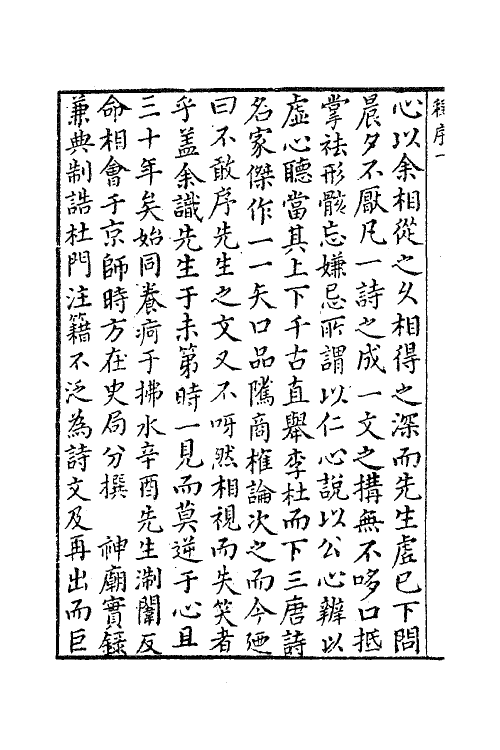 程序一
心以余相從之久相得之深而先生虛已下問
晨夕不厭凡一詩之成一文之搆無不哆口抵
掌祛形骸忘嫌忌所謂以仁心說以公心辨以
虛心聽當其上下千古直舉李杜而下三唐詩
名家傑作一一矢口品隲商榷論次之而今廼
曰不敢序先生之文又不呀然相視而失笑者
乎盖余識先生于未第時一見而莫逆于心且
三十年矣始同養疴于拂水辛酉先生淛闈反
命相會于京師時方在史局分撰　神廟實錄
兼典制誥杜門注籍不泛為詩文及再出而巨